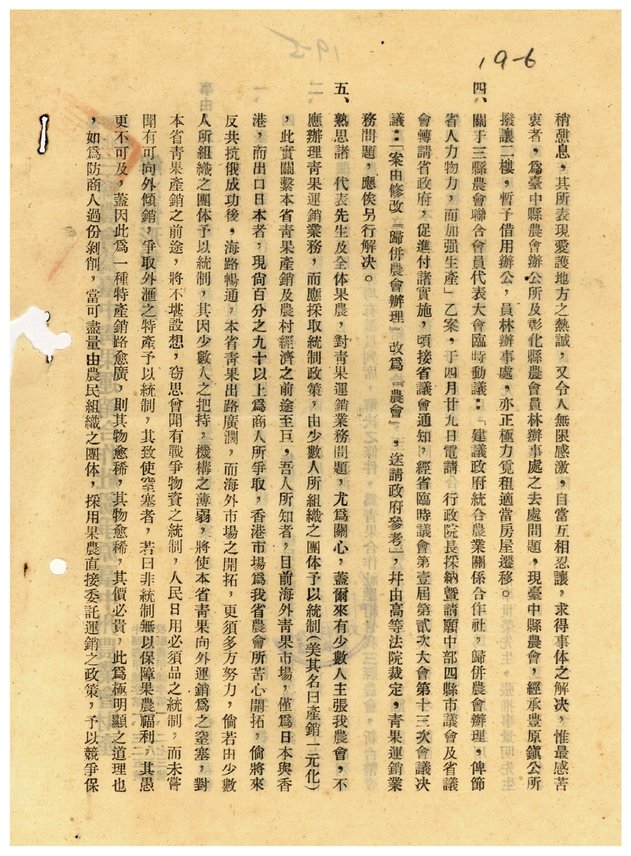 19-6
稍憩息，其所表現愛護地方之熱誠，又令人無限感激，自當互相忍讓，求得事体之解决，惟最感苦
衷者，爲臺中縣農會辦公所及彰化縣農會員林辦事處之去處問題，現臺中縣農會，經承豊原鎭公所
撥讓二樓，暫予借用辦公，員林辦事處，亦正極力覓租適當房屋遷移。
四、關于三縣農會聯合會員代表大會臨時動議：「建議政府統合農業關係合作社，歸併農會辦理，俾節
省人力物力，而加强生產」乙案，于四月廿九日電請　行政院長採納暨請願中部四縣市議會及省議
會轉請省政府，促進付諸實施，頃接省議會通知，經省臨時議會第壹屆第貳次大會第十三次會議决
議：「案由修改「歸併農會辦理」改爲「農會」，送請政府參考」，幷由高等法院裁定，靑果運銷業
務問題，應俟另行解决。
五、熟思諸　代表先生及全体果農，對靑果運銷業務問題，尤爲關心，蓋爾來有少數人主張我農會，不
應辦理靑果運銷業務，而應採取統制政策，由少數人所組織之團体予以統制（美其名曰產銷一元化）
，此實關繫本省靑果產銷及農村經濟之前途至巨，吾人所知者，目前海外靑果市場，僅爲日本與香
港，而出口日本者，現尙百分之九十以上爲商人所爭取，香港市塲爲我省農會所苦心開拓，倘將來
反共抗俄成功後，海路暢通，本省靑果出路廣濶，而海外市塲之開拓，更須多方努力，倘若由少數
人所組織之團体予以統制，其因少數人之把持，機構之薄弱，將使本省靑果向外運銷爲之窒塞，對
本省靑果產銷之前途，將不堪設想，窃思曾聞有戰爭物資之統制，人民日用必須品之統制，而未嘗
聞有可向外傾銷，爭取外滙之特產予以統制，其致使窒塞者，若曰非統制無以保障果農福利，其愚
更不可及，蓋因此爲一種特產銷路愈廣，則其物愈稀，其物愈稀，其價必貴，此爲極明顯之道理也
，如爲防商人過份剝削，當可盡量由農民組織之團体，採用果農直接委託運銷之政策，予以競爭保